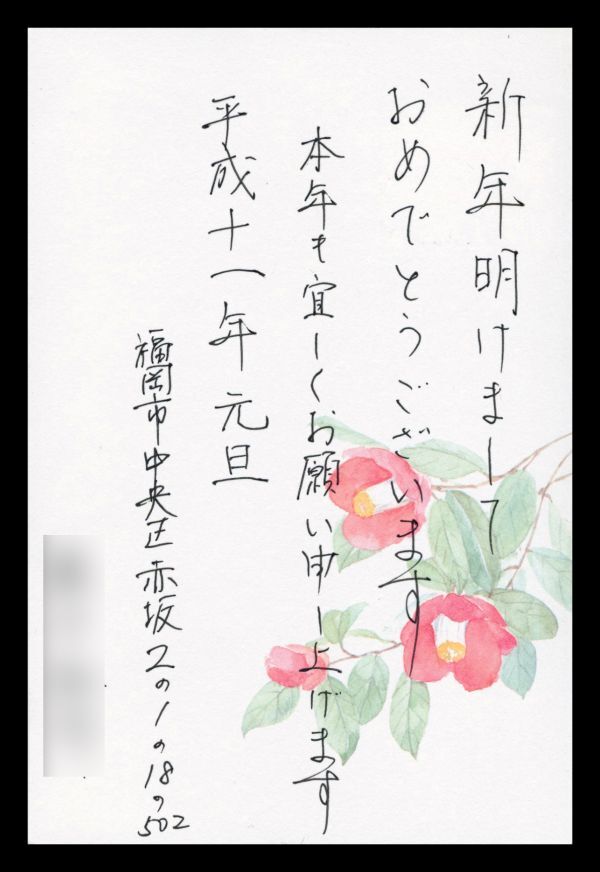 新年明けまして
おめでとうございます
本年も宜しくお願い申し上げます
平成十一年元旦
福岡市中央区赤坂2の1の18の502